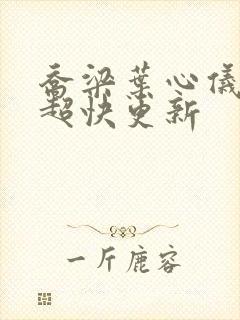 乔梁葉心儀
超快更新
一斤鹿容